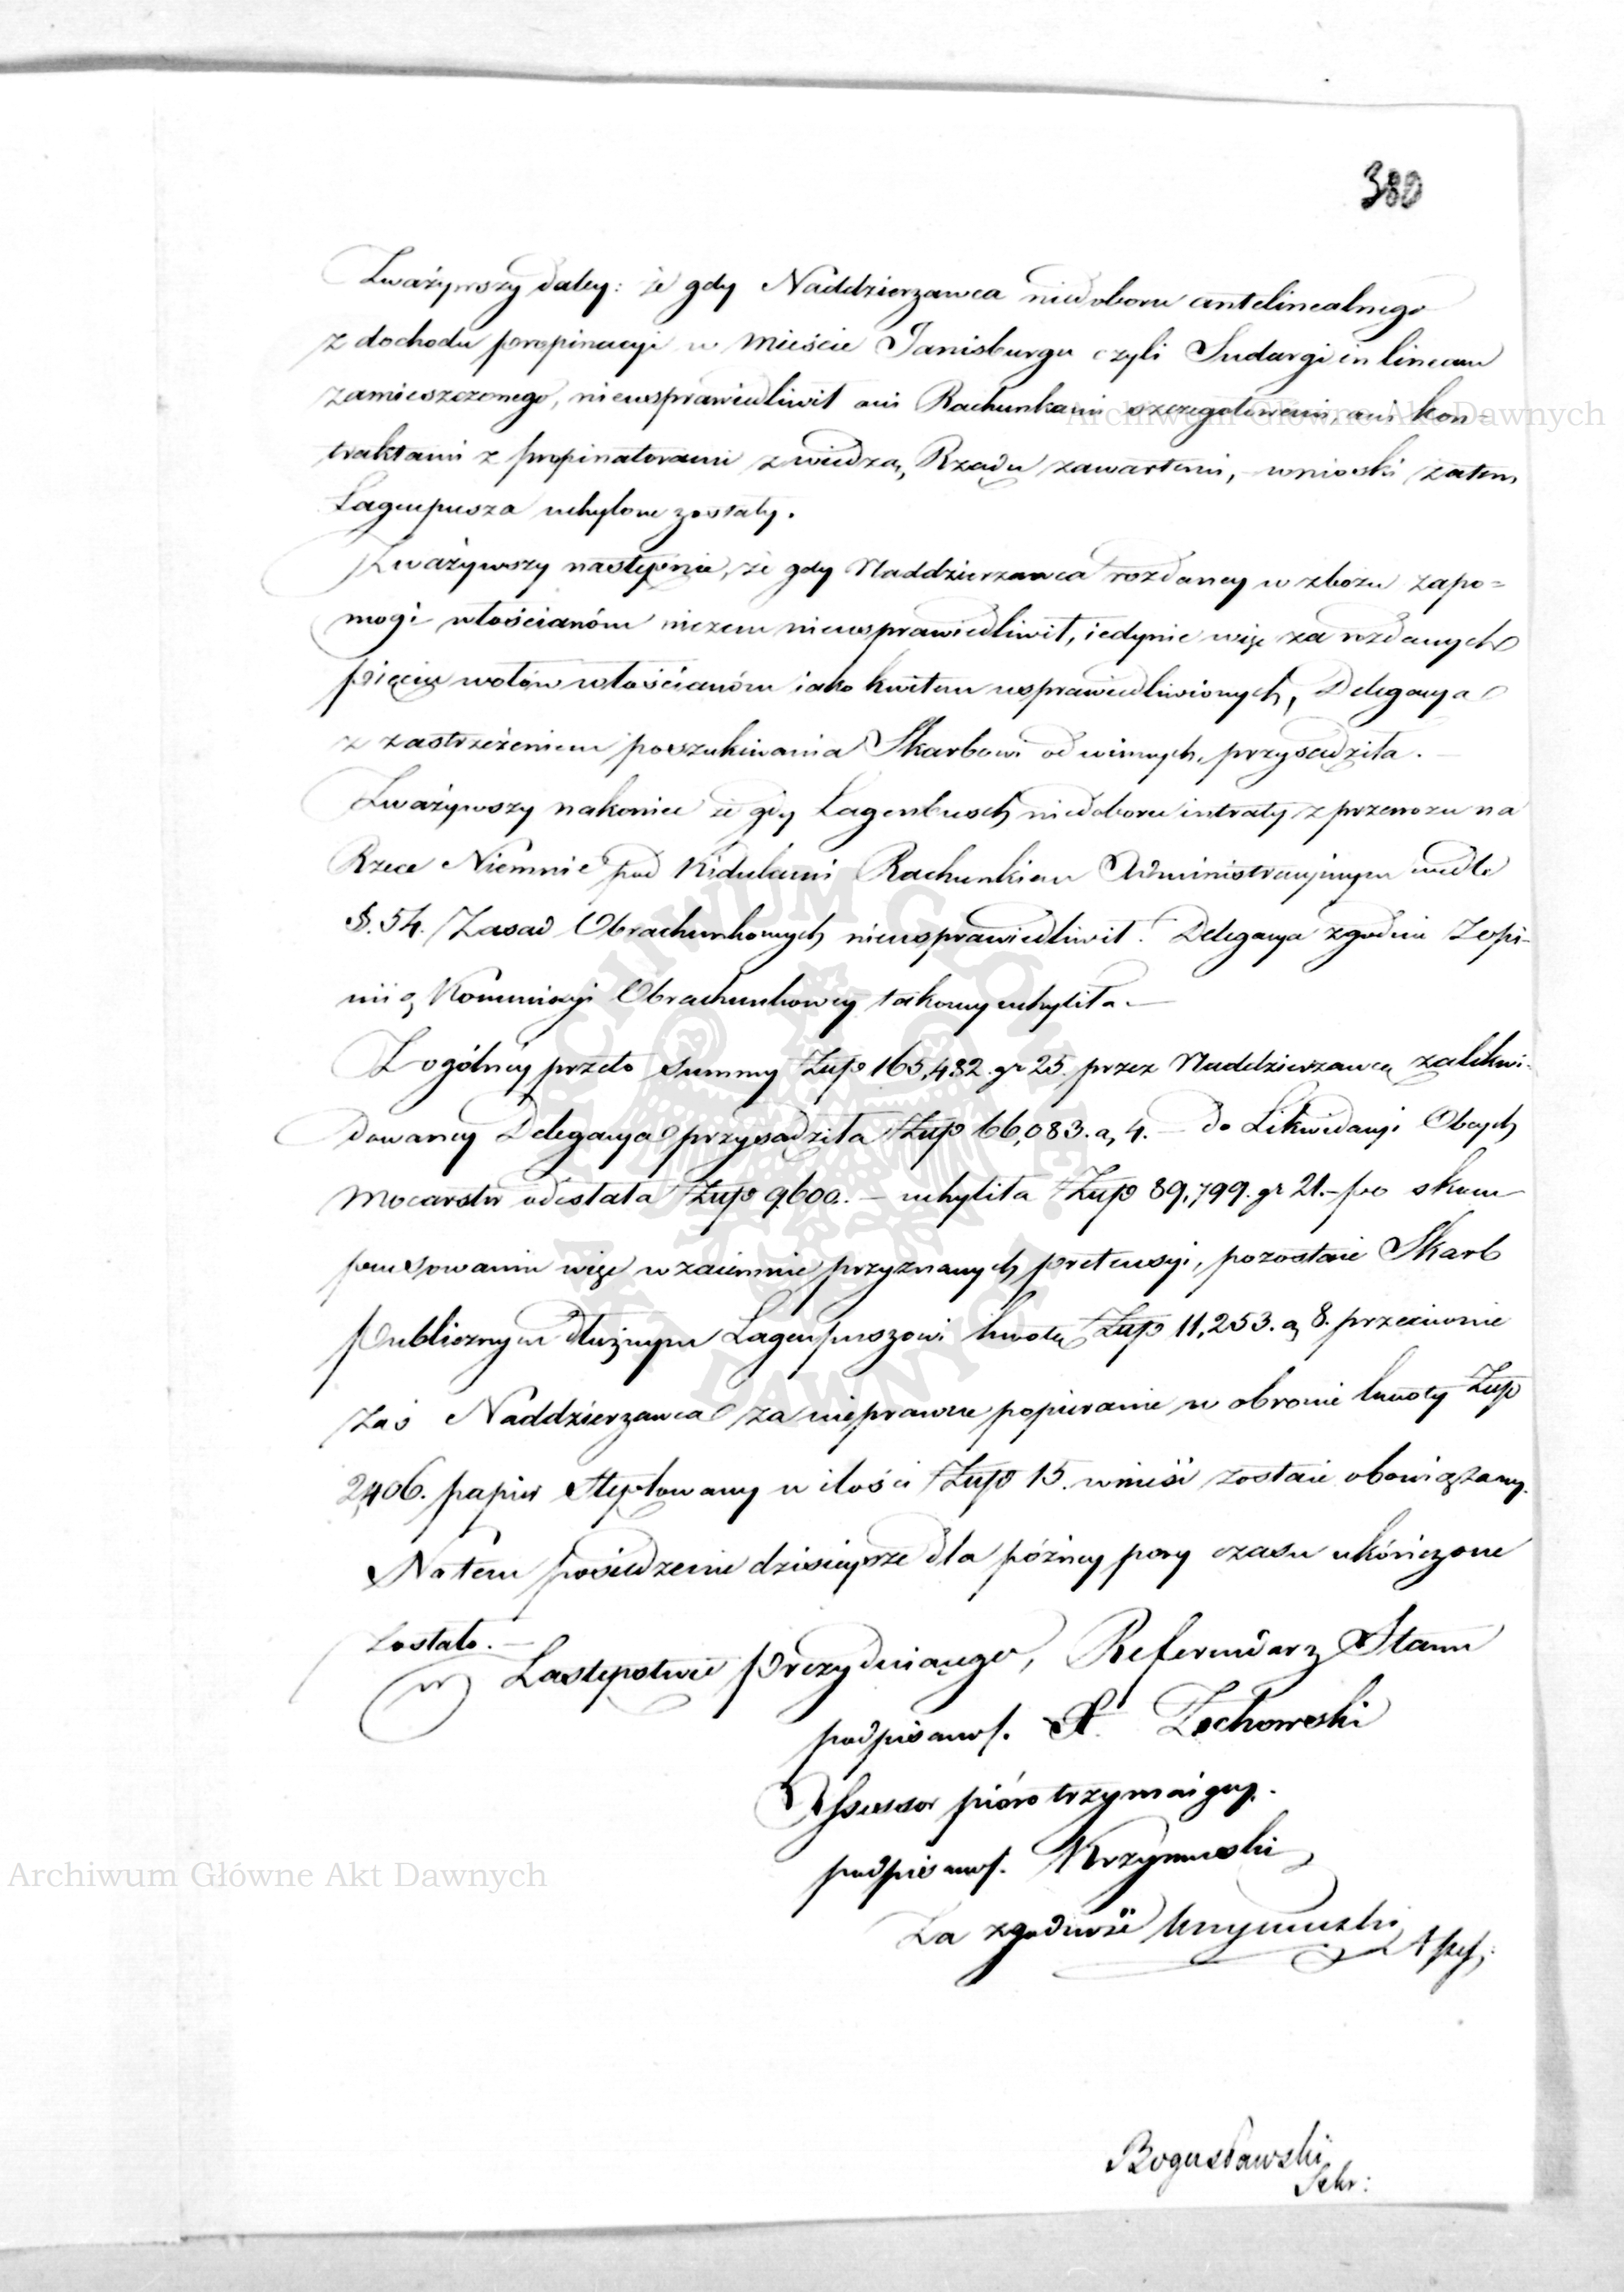 380
Zważywszy daley: że gdy Naddzierzawca niedoboru antelinealnego
z dochodu propinacyi w Mieście Janisburgu czyli Sudargi in lineam
zamieszczonego, nieusprawiedliwił ani Rachunkami szczegołowemi, ani kon-
traktami z propinatorami z wiedzą Rządu zawartemi, wnioski zatem
Lagenpusza uchylone zostały.
Zważywszy następnie, że gdy Naddzierzawca rozdaney w zbożu zapo=
mogi włościanóm niczem nieusprawiedliwił, iedynie więc za rozdanych
pięciu wołów włościanóm iako kwitem usprawiedliwionych, Delegacya
z zastrzeżeniem poszukiwania Skarbowi od winnych, przysądziła. –
Zważywszy nakoniec że gdy Lagenbusch niedoboru intraty z przewozu na
Rzece Niemnie pod Kidulami Rachunkiem Administracyinym wedle
§. 54. Zasad Obrachunkowych nieusprawiedliwił. Delegacya zgodnie Z opi-
nią Kommissyi Obrachunkowey takowy uchyliła. –
Z ogólney przeto Summy Złp 165,482. gr 25. przez Naddzierzawcę zalikwi-
dowaney Delegacya przysądziła Złp 66,083. g, 4. – do Likwidacyi Obcych
Mocarstw odesłała Złp 9,600. – uchyliła Złp 89,799. gr 21. – po skom
pensowaniu więc wzaiemnie przyznanych pretensyi, pozostaie Skarb
Publicznym dłużnym Lagenpuszowi kwotę Złp 11,253. g, 8. przeciwnie
Zaś Naddzierzawca za nieprawne popieranie w obronie kwoty Złp
2,406. papier stęplowany w ilości Złp 15. wnieść zostaie obowiązany.
Na tem posiedzenie dzisieysze dla późney pory czasu ukończone
Zostało. –
w Zastępstwie Prezyduiącego, Referendarz Stanu
podpisano/. A. Żochowski
Assessor pióro trzymaiący.
podpisano/. Krzymuski
Za zgodność Krzymuski
Assess:
Bogusławski
Sekr:
Archiwum Główne Akt Dawnych
Archiwum Główne Akt Dawnych
ARCHIWUM GŁÓWNE AKT DAWNYCH